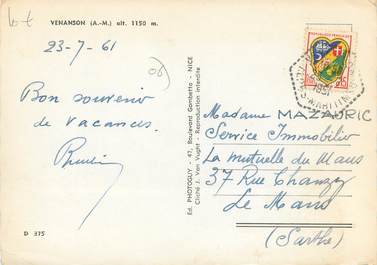 VENANSON (A.-M.) alt. 1150 m.
23-7-61
(06)
Bon souvenir
de vacances.
D 375
Ed. PHOTOGUY - 47, Boulevard Gambetta - NICE
Cliché J. Van Vught - Reproduction interdite
REPUBLIQUE FRANÇAISE
Madame MAZAURIC
Service Immobilier
La Mutuelle du Mans
37 Rue Chanzy
Le Mans
(Sarthe)